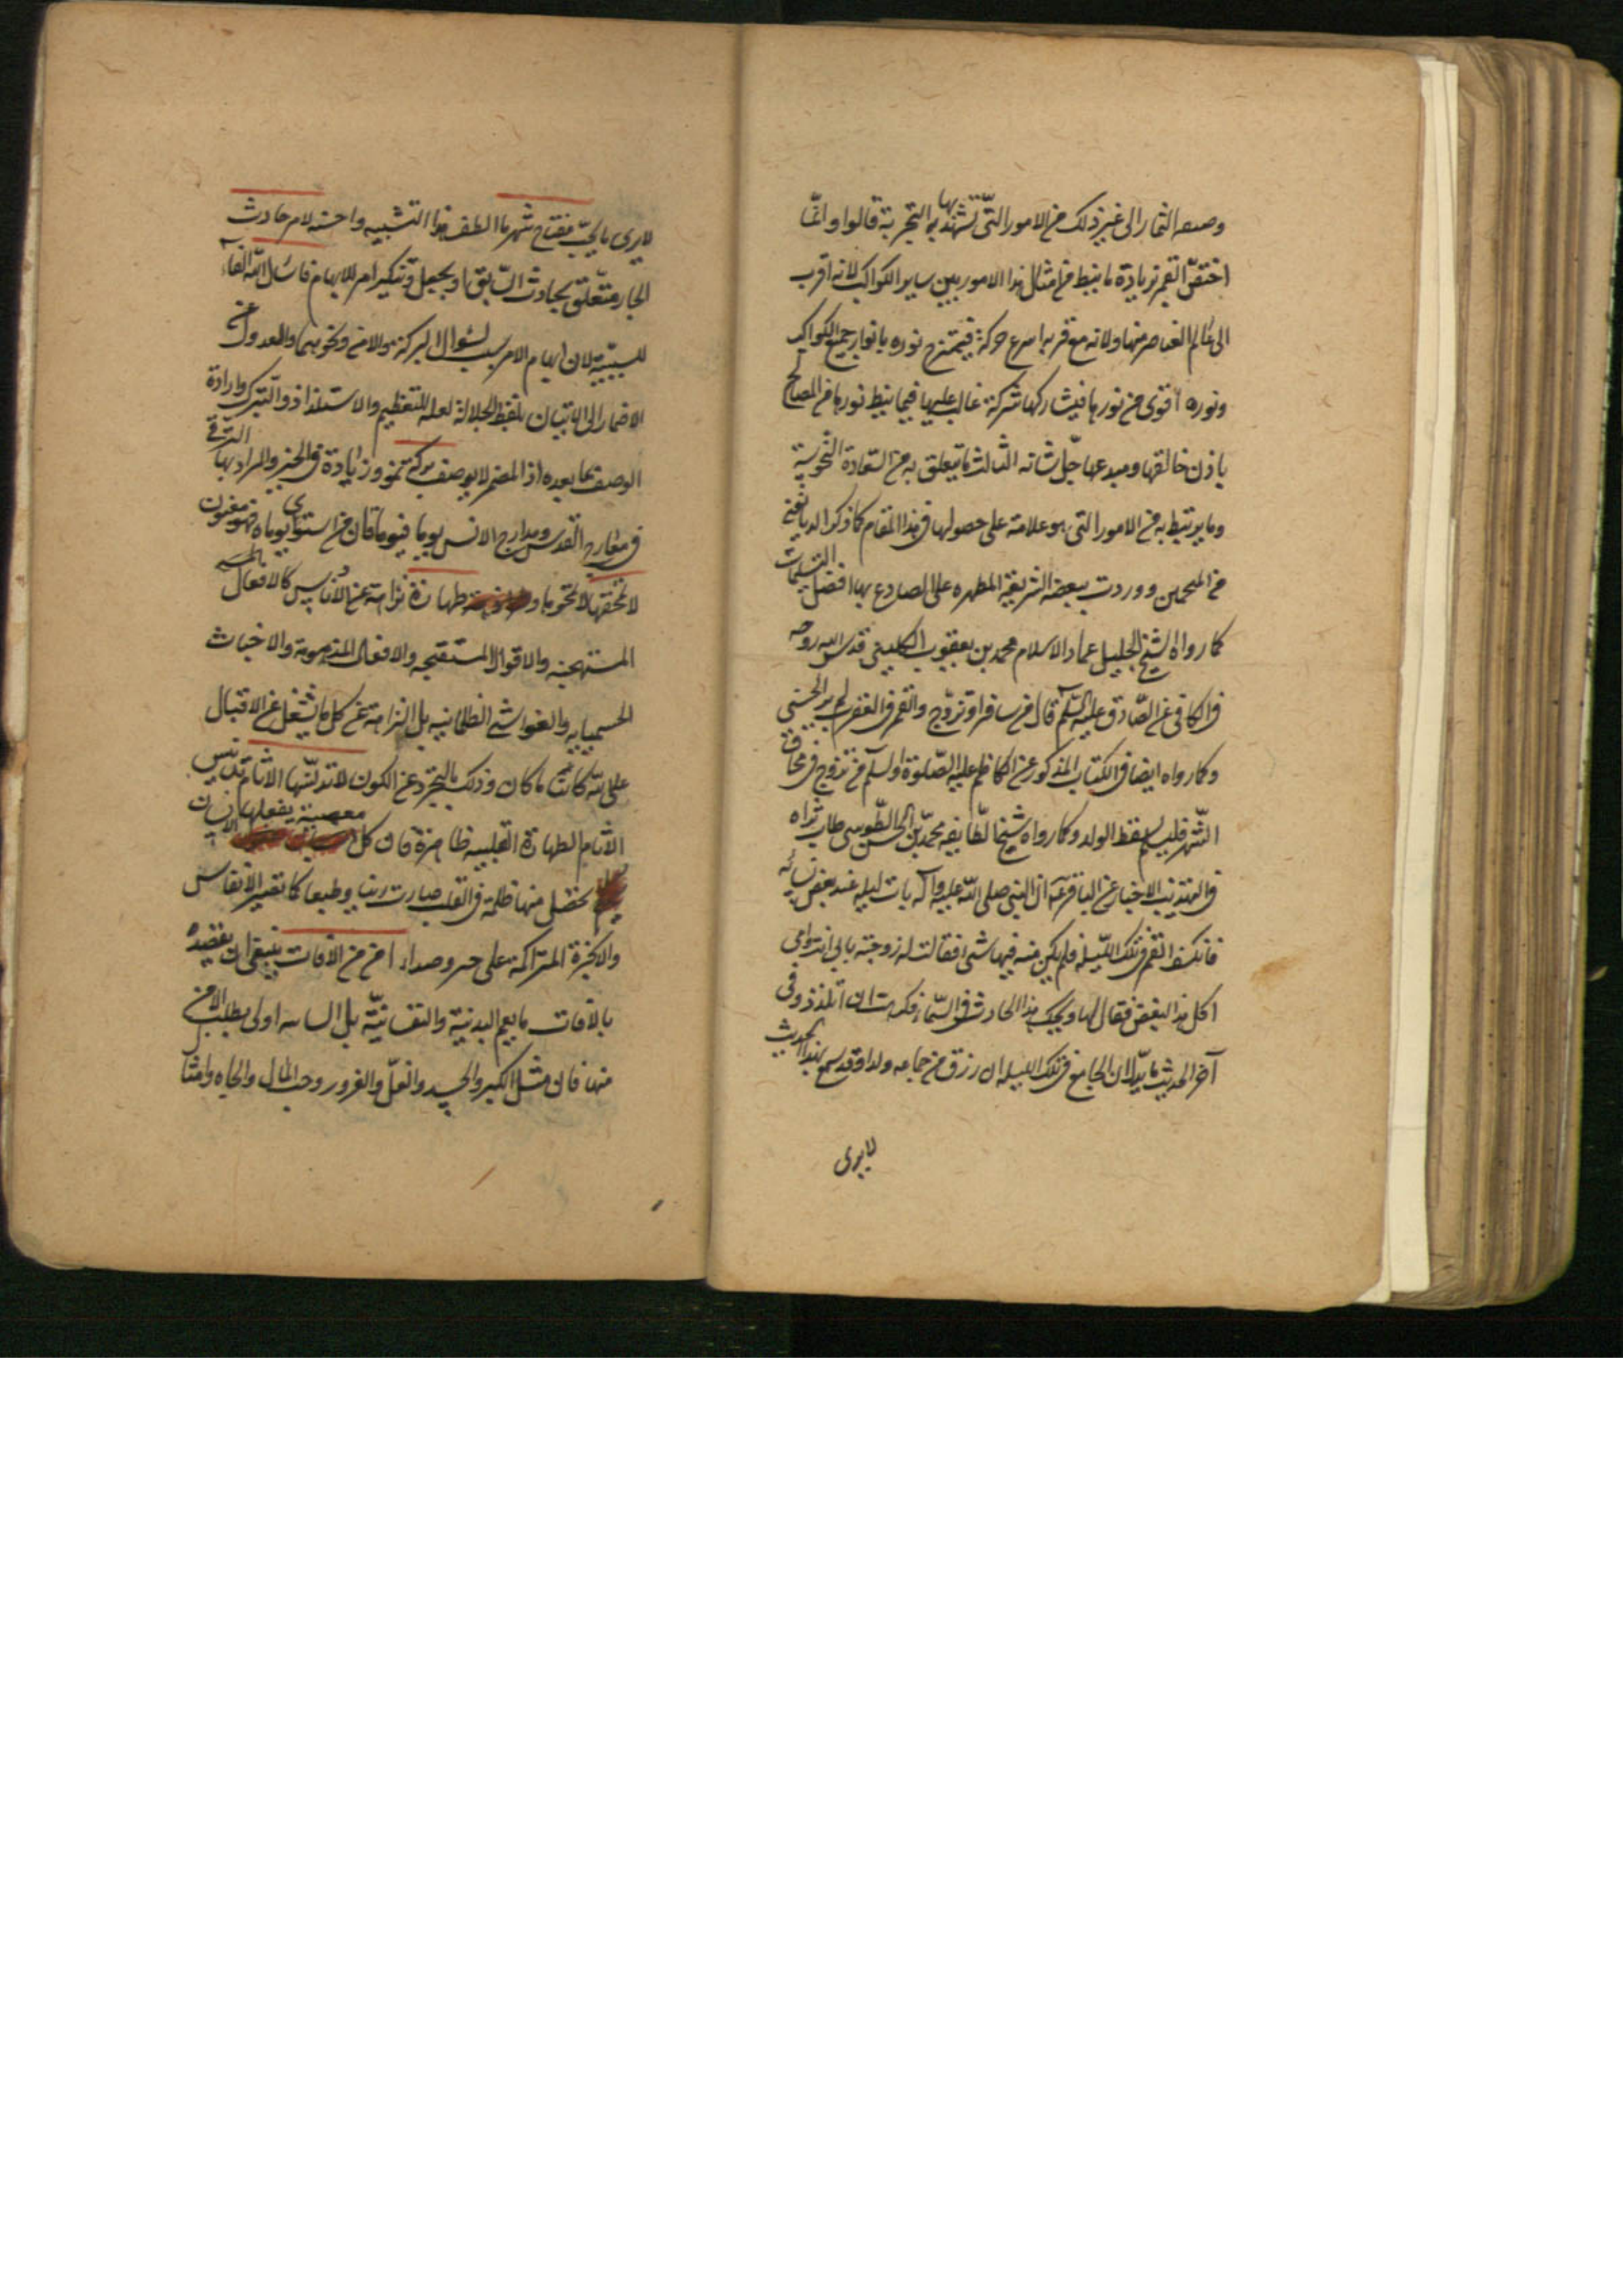 وصبغه الثمار الى غير ذلك من الامور التى تشهد بها التجربة قالوا وانما
اختص القمر بزيادة ما نيط به من امثال هذا الامور بين ساير الكواكب لانه اقرب
الى عالم العناصر منها ولانه مع قربه اسرع حركة فيمتزج نوره بانوار جميع الكواكب
ونوره اقوى من نورها فيشاركها شركة غالب عليها فيما نيط بنورها من المصالح
باذن خالقها ومبدعها جل شانه الثالث ما يتعلق به من السعادة والنحوسة
وما يرتبط به من الامور التى هو علامة على حصولها فى هذا المقام كما ذكره الديانتين
من المنجمين ووردت ببعضه الشريعة المطهره على الصادع بها افضل التسليمات
كما رواه الشيخ الجليل عماد الاسلام محمد بن يعقوب الكلينى قدس الله روحه
فى الكافى عن الصادق عليه السلم قال من سافر او تزوج والقمر فى العقرب لم ير الحسنى
وكما رواه ايضا فى الكتاب المذكور عن الكاظم عليه الصلوة والسلم من تزوج فى محاق
الشهر فليسلم لسقط الولد وكما رواه شيخ الطايفه محمد بن الحسن الطوسى طاب ثراه
فى تهذيب الاخبار عن الباقر ع ان النبى صلى الله عليه واله بات ليله عند بعض نسائه
فانكسف القمر فى تلك الليله فلم يكن منه فيها شئ فقالت له زوجته بابى انت وامى
اكل هذا البغض فقال لها ويحك هذا الحادث فى السماء فكرهت ان اتلذذ وفى
آخر الحديث ما يدل ان المجامع فى تلك الليله ان رزق من جماعه ولدا وقد سمع بهذا الحديث
لا يرى
لا يرى ما يحب مفتاح شهر ما الطف هذا التشبيه واحسنه لامر حادث
الجار متعلق بحادث السابق او بجعل وتنكير امر للابهام فاسئل الله الفاء
للسببية لان ابهام الامر سبب لسؤال البركة والامن ونحوهما والعدول عن
الاضمار الى الاتيان بلفظ الجلالة لعله للتعظيم والاستلذاذ والتبرك وارادة
الوصف بما بعده اذ المضمر لا يوصف بركة نمو وزيادة فى الخير والمراد بها الترقى
فى معارج القدس ومدارج الانس يوما فيوما فان من استوى يوماه فهو مغبون
لا تمحقها لا تمحوها وطهارة نزاهة عن الادناس كالافعال
المستهجنه والاقوال المستقبحه والافعال المذمومة والاخباث
الجسميايه والغواشى الظلمانيه بل النزاهة عن كل ما يشغل عن الاقبال
على الله كائنا ما كان وذلك بالتجرد عن الكون لا تدنسها الاثام تدنيس
الاثام لطهارة القلبيه ظاهرة فان كل معصية يفعلها الانسان
يحصل منها ظلمة فى القلب صارت رينا وطبعا كما تصير الانفاس
والابخرة المتراكمة على صداء امن من الافات ينبغى ان يقصد
بالافات ما يعم البدنية والنفسانية بل اولى بطلب الامن
منها فان مثل الكبر والحسد والغل والغرور وحب المال والجاه وامثا